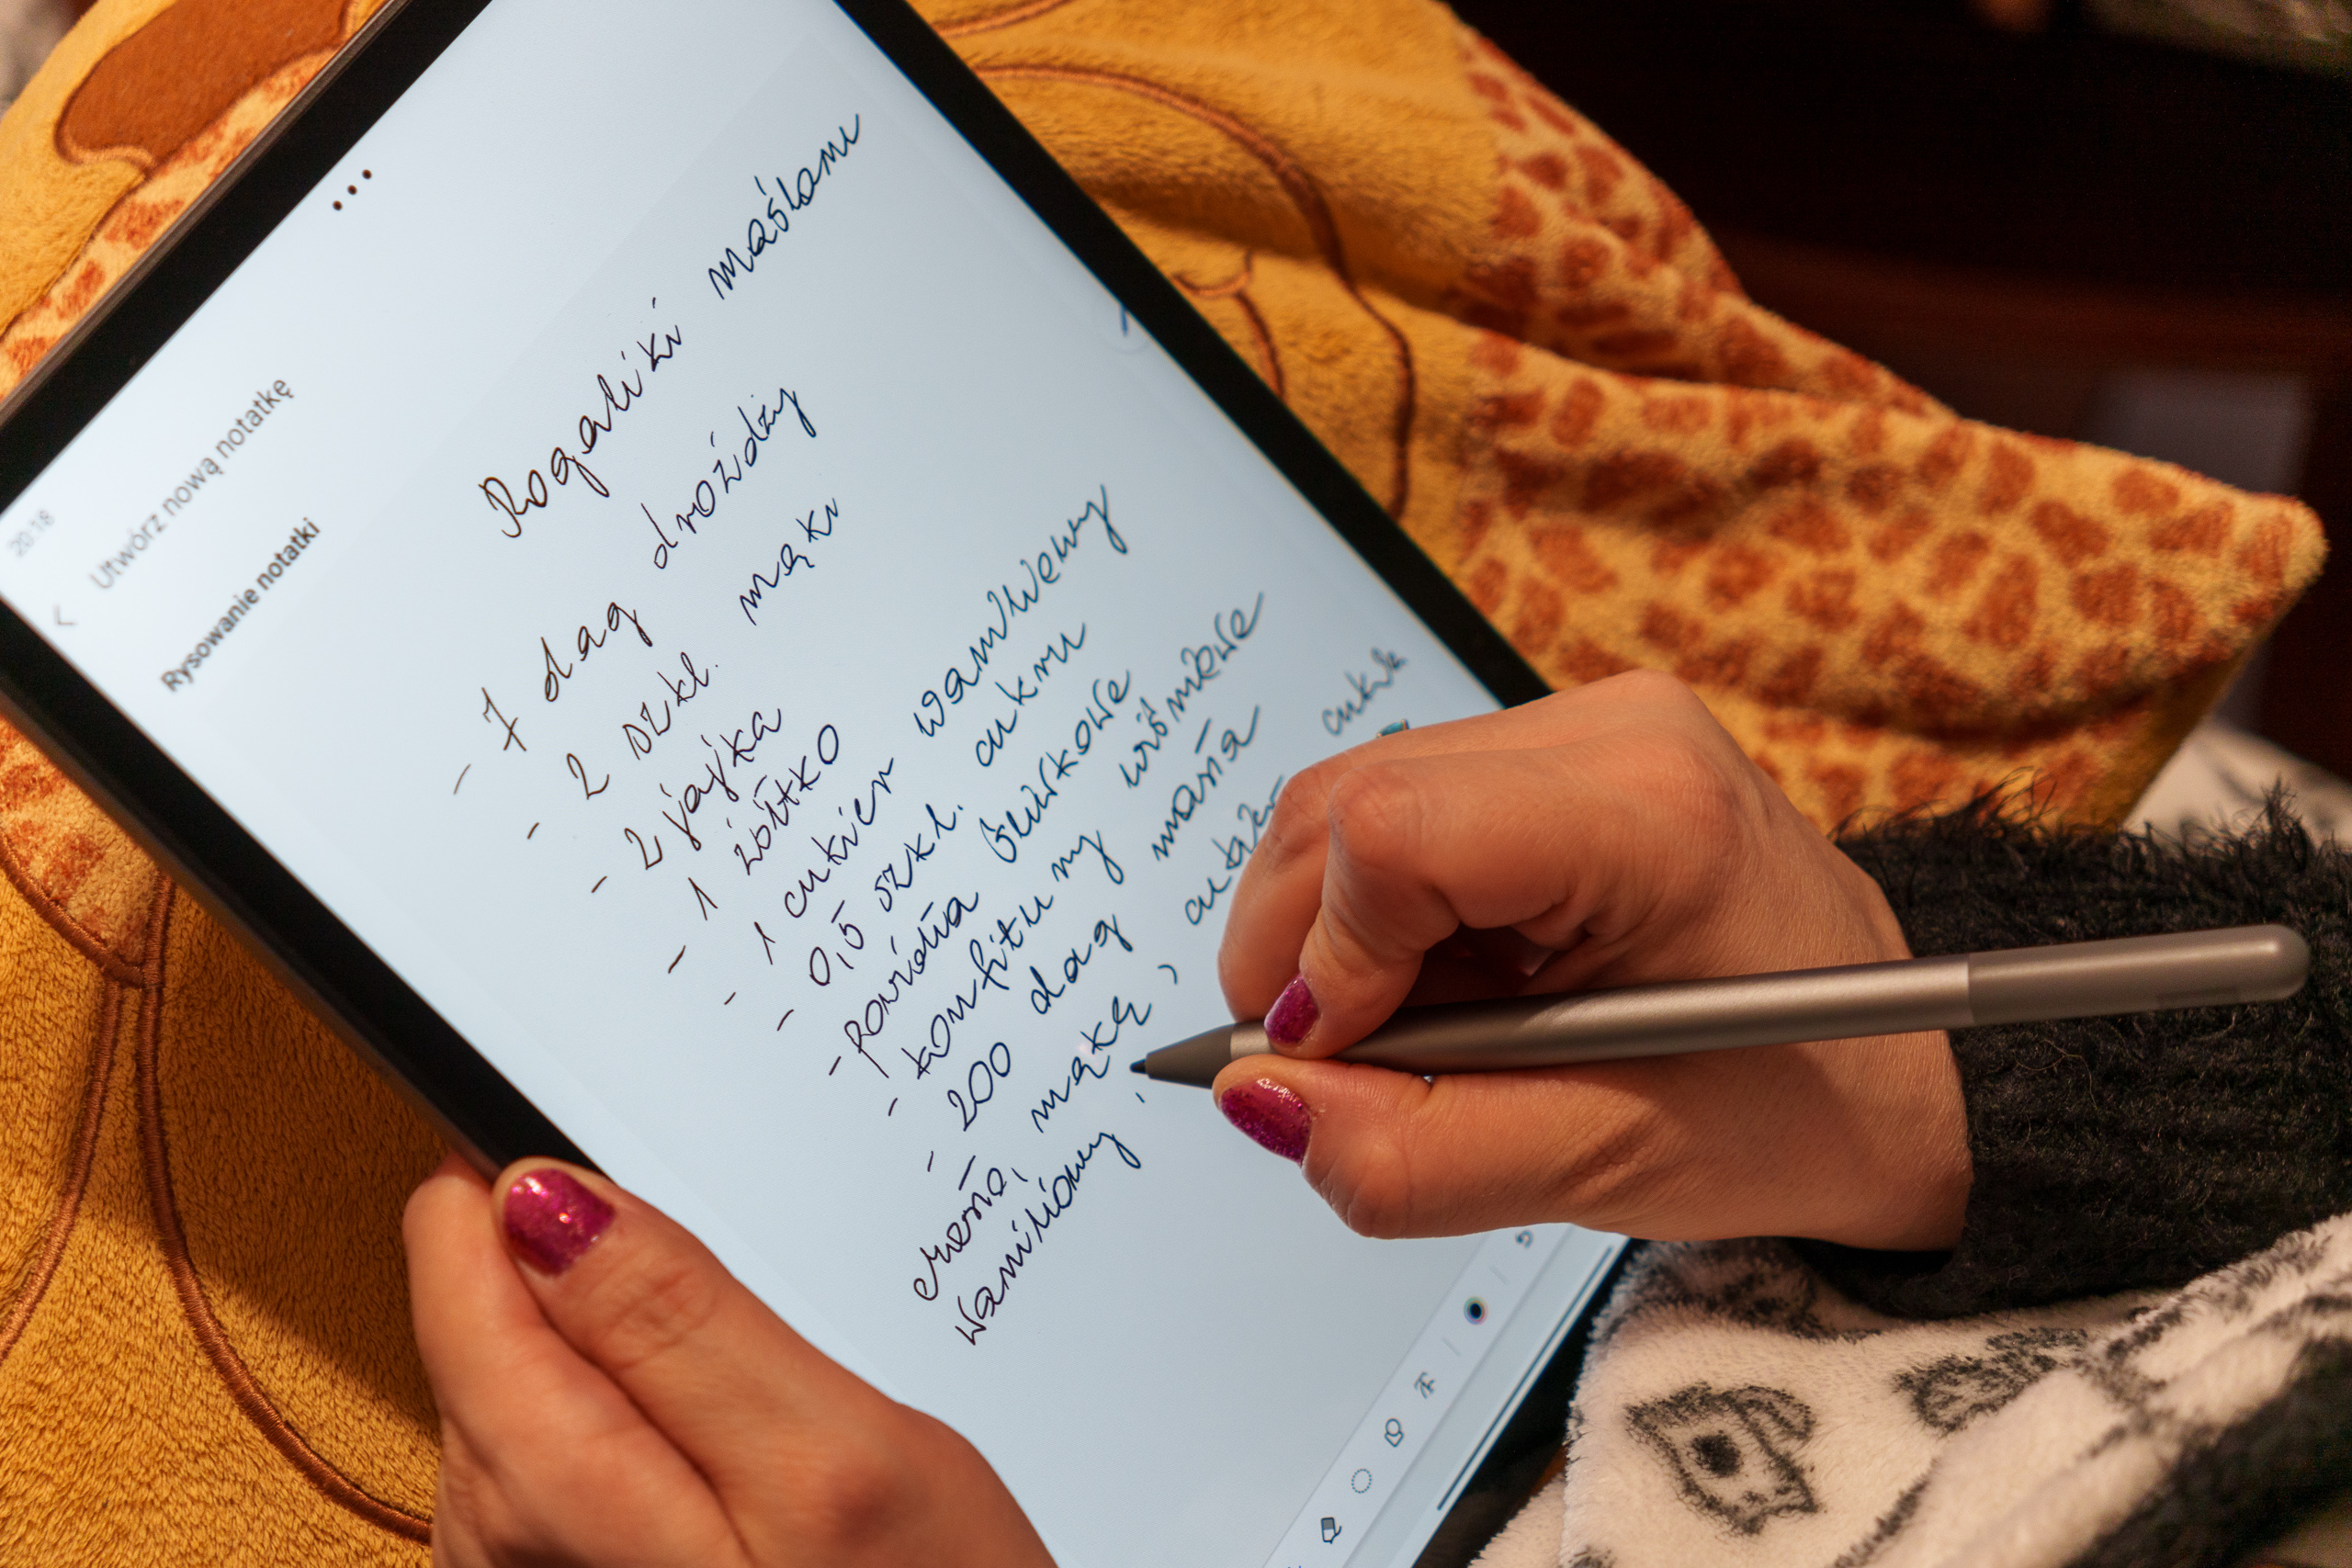 20:18
Utwórz nową notatkę
Rysowanie notatki
Rogaliki maślane
- 7 dag drożdży
- 2 szkl. mąki
- 2 jajka
- 1 żółtko
- 1 cukier waniliowy
- 0,5 szkl. cukru
- powidła śliwkowe
- konfitury wiśniowe
- 200 dag masła
mąkę,
waniliowy,